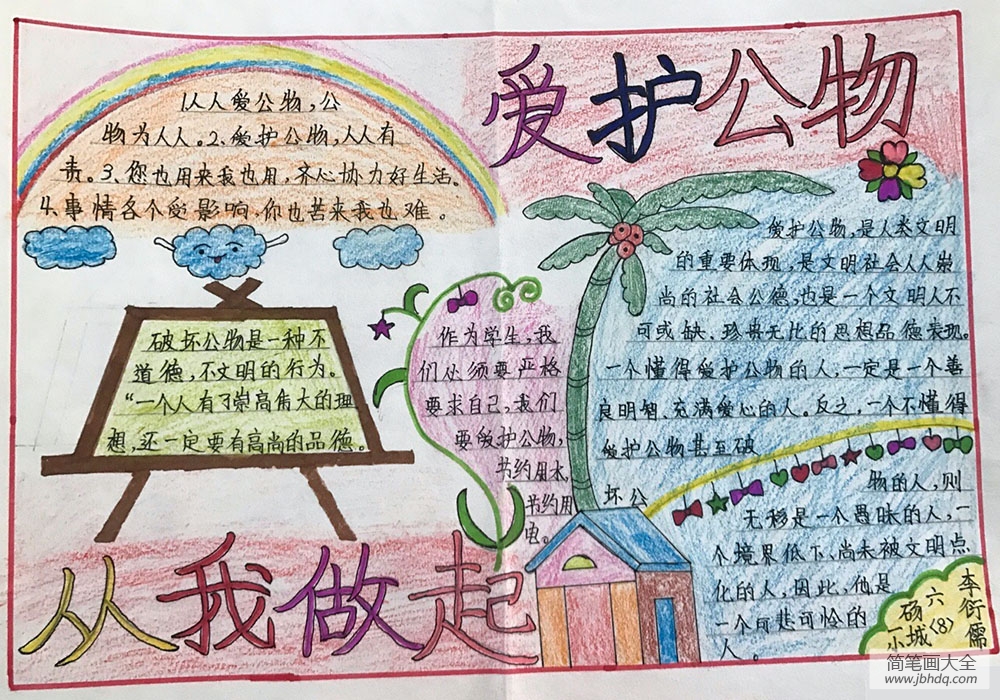 爱护公物
1人人爱公物，公
物为人人。2、爱护公物，人人有
责。3、您也用来我也用，齐心协力好生活。
4、事情各个受影响，你也苦来我也难。
破坏公物是一种不
道德，不文明的行为。
“一个人有了崇高角大的理
想，还一定要有高尚的品德。
作为学生，我
们必须要严格
要求自己，我们
要爱护公物，
节约用水，
节约用
电。
爱护公物，是人类文明
的重要体现，是文明社会人人崇
尚的社会公德，也是一个文明人不
可或缺、珍贵无比的思想品德表现。
一个懂得爱护公物的人，一定是一个善
良明智、充满爱心的人。反之，一个不懂得
爱护公物甚至破
坏公
物的人，则
无疑是一个愚昧的人，一
个境界低下、尚未被文明点
化的人，因此，他是
一个可悲可怜的
人。
从我做起
砀城小
六〈8〉
李衍儒
简笔画大全
www.jbhdq.com